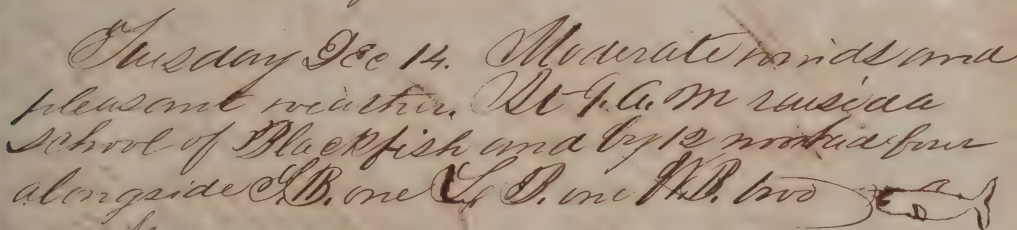 Tuesday Dec 14. Moderate winds and
pleasant weather. At 9. A. M raised a
school of Blackfish and by 12 had four
alongside S.B. one L. B. one W.B. two